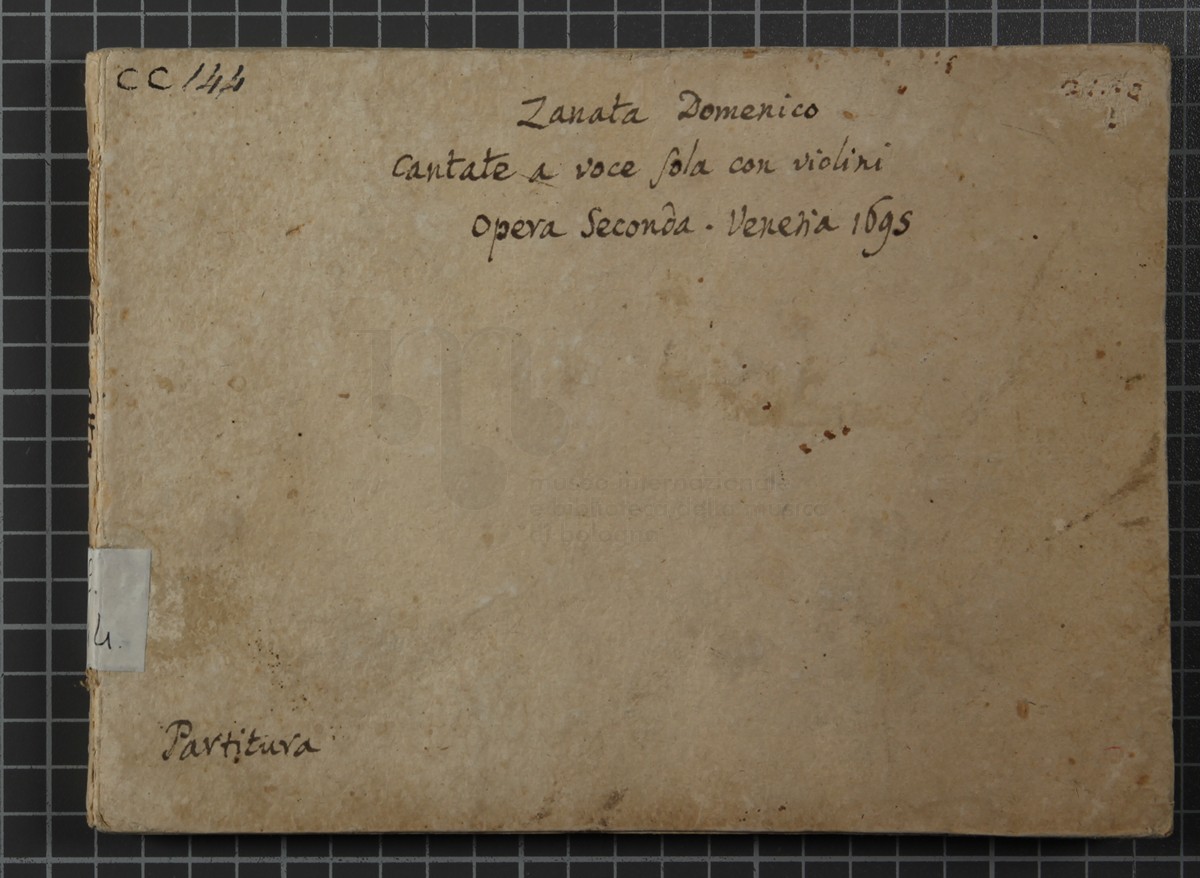 CC 144
Zanata Domenico
Cantate a voce sola con violini
Opera Seconda. Venezia 1695
museo internazionale
e biblioteca della musica
di bologna
4.
Partitura